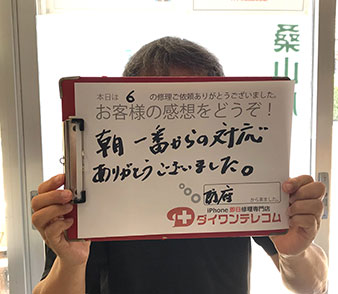 桑山
本日は 6 の修理ご依頼ありがとうございました。
お客様の感想をどうぞ！
朝一番からの対応
ありがとうございました。
から来ました。
iPhone 即日修理専門店
ダイワンテレコム